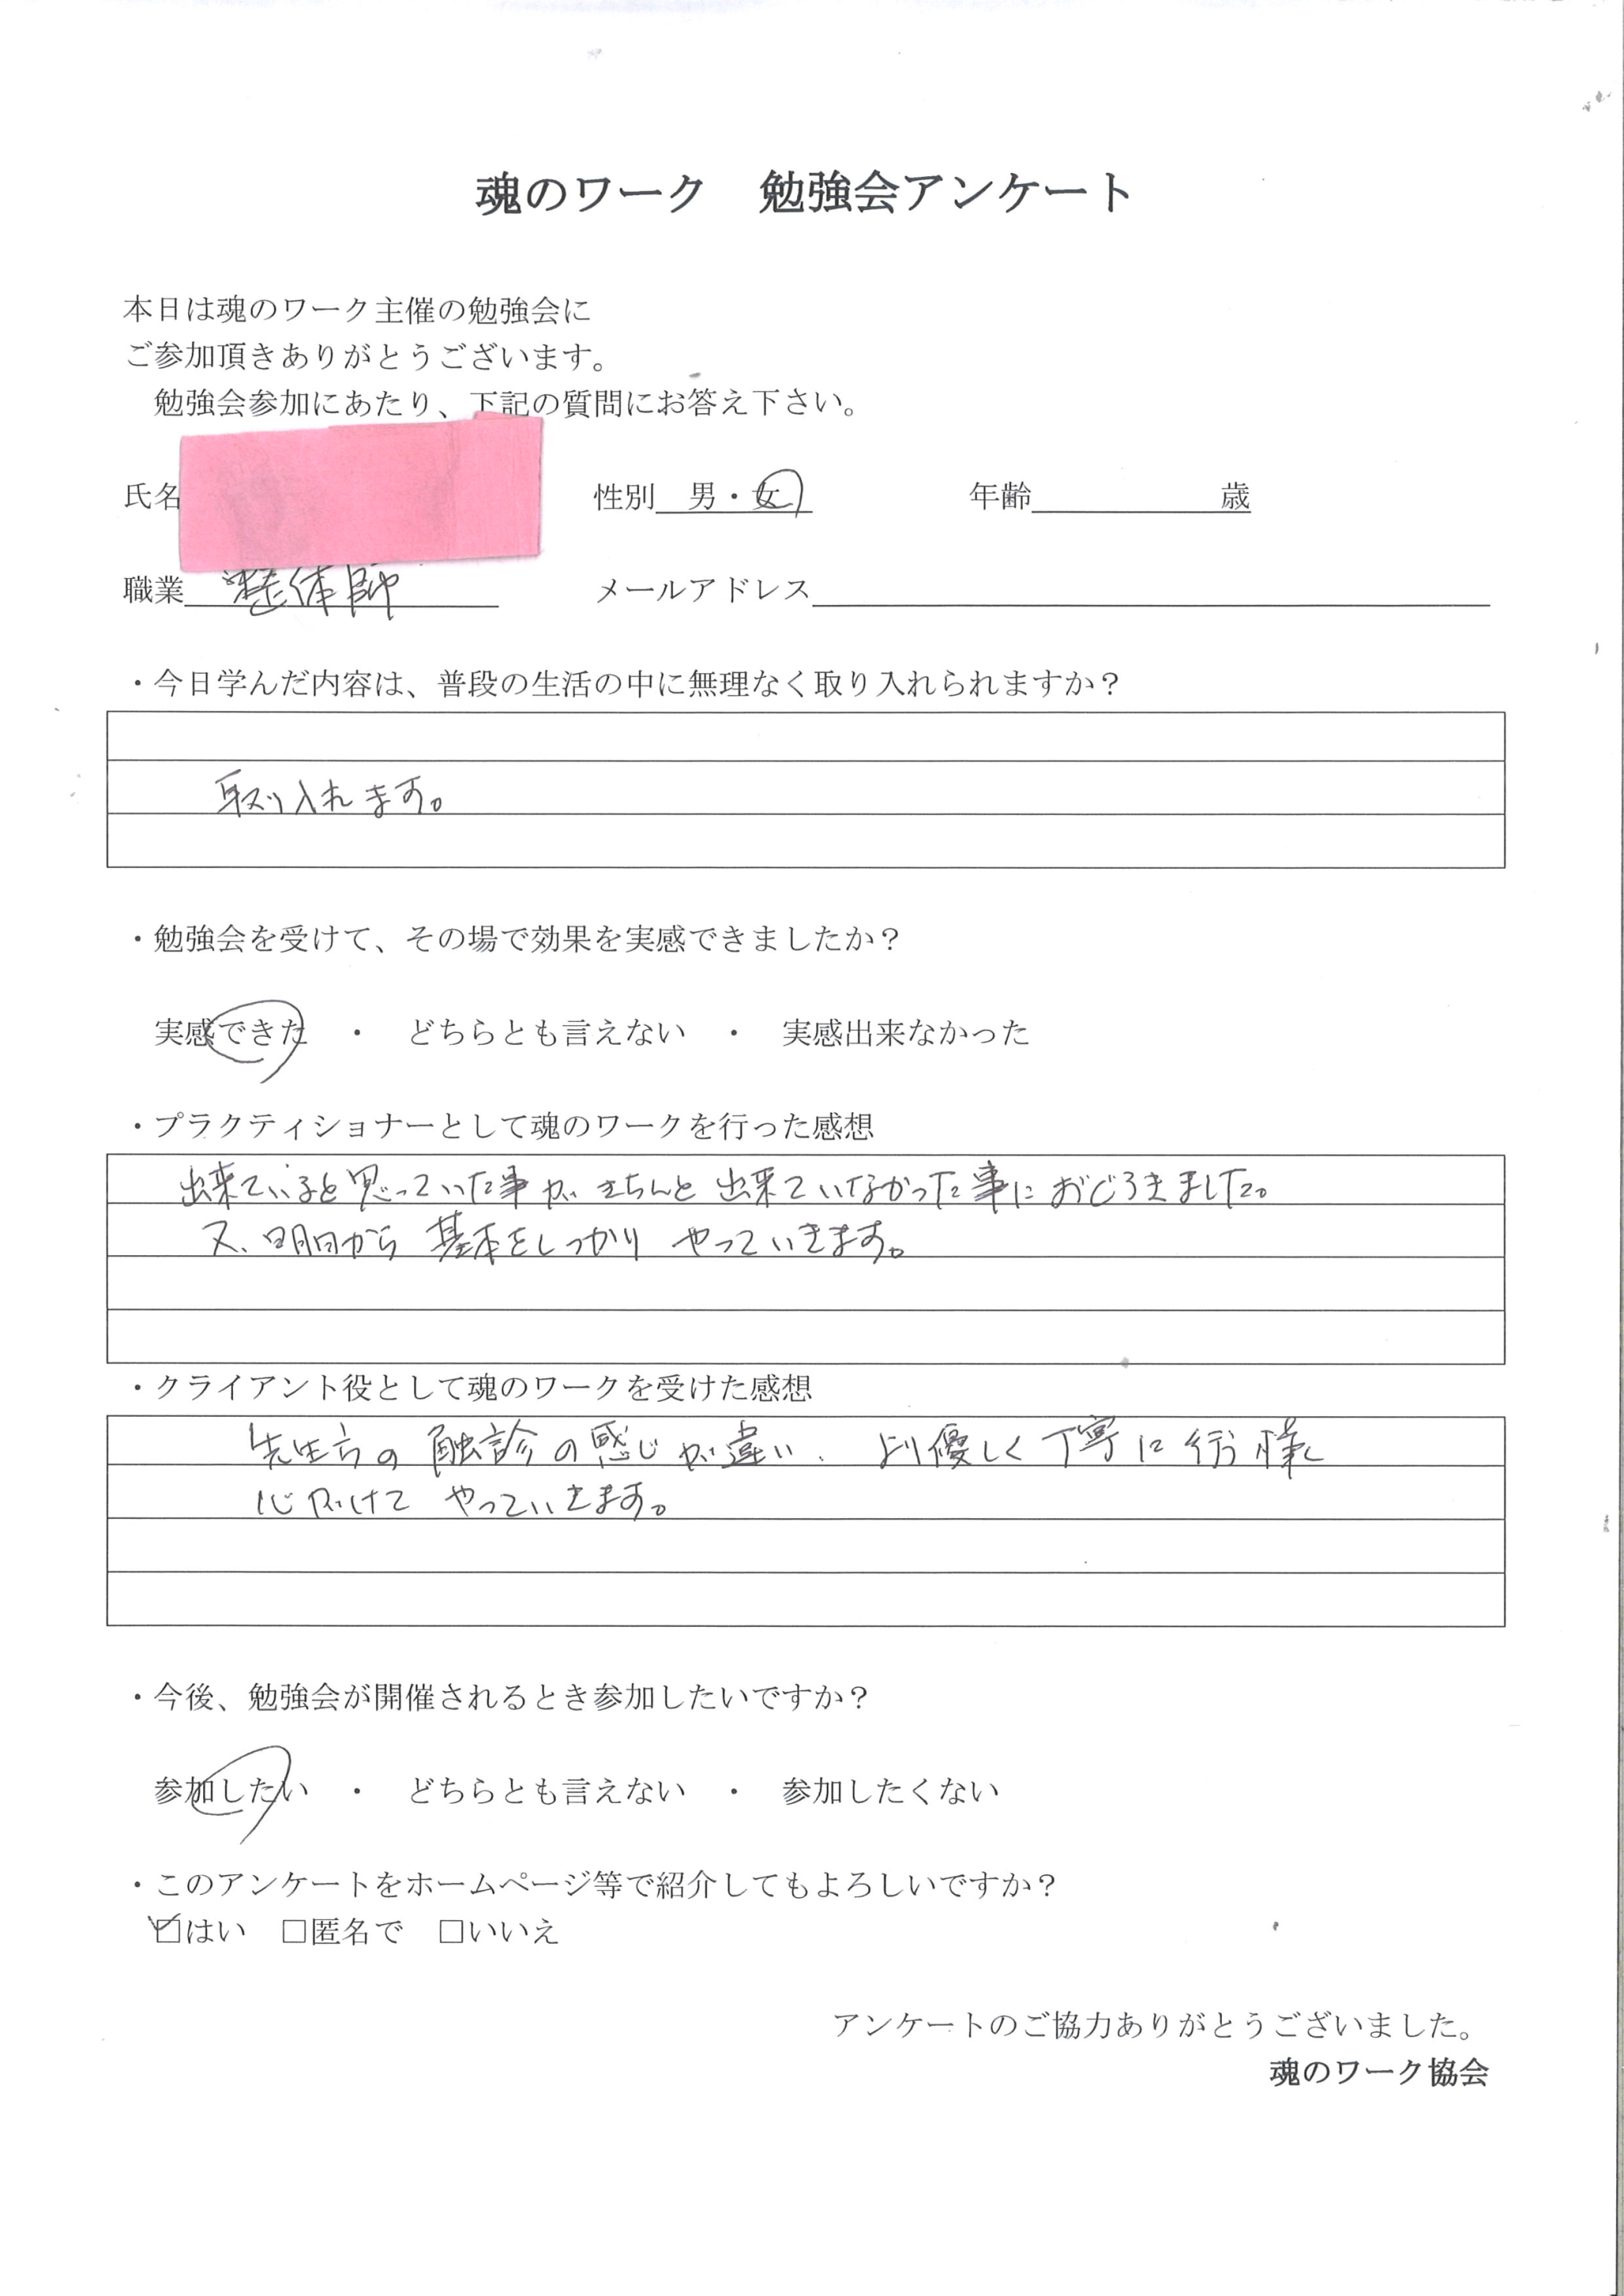 魂のワーク　勉強会アンケート
本日は魂のワーク主催の勉強会に
ご参加頂きありがとうございます。
勉強会参加にあたり、下記の質問にお答え下さい。
氏名　性別　男・女　年齢　歳
職業　整体師　メールアドレス
・今日学んだ内容は、普段の生活の中に無理なく取り入れられますか？
取り入れます。
・勉強会を受けて、その場で効果を実感できましたか？
実感できた　・　どちらとも言えない　・　実感出来なかった
・プラクティショナーとして魂のワークを行った感想
出来ていると思っていた事が、きちんと出来ていなかった事におどろきました。
又、明日から基本をしっかりやっていきます。
・クライアント役として魂のワークを受けた感想
先生方の触診の感じが違い、より優しく丁寧に行う様
心がけてやっていきます。
・今後、勉強会が開催されるとき参加したいですか？
参加したい　・　どちらとも言えない　・　参加したくない
・このアンケートをホームページ等で紹介してもよろしいですか？
☑はい　□匿名で　□いいえ
アンケートのご協力ありがとうございました。
魂のワーク協会